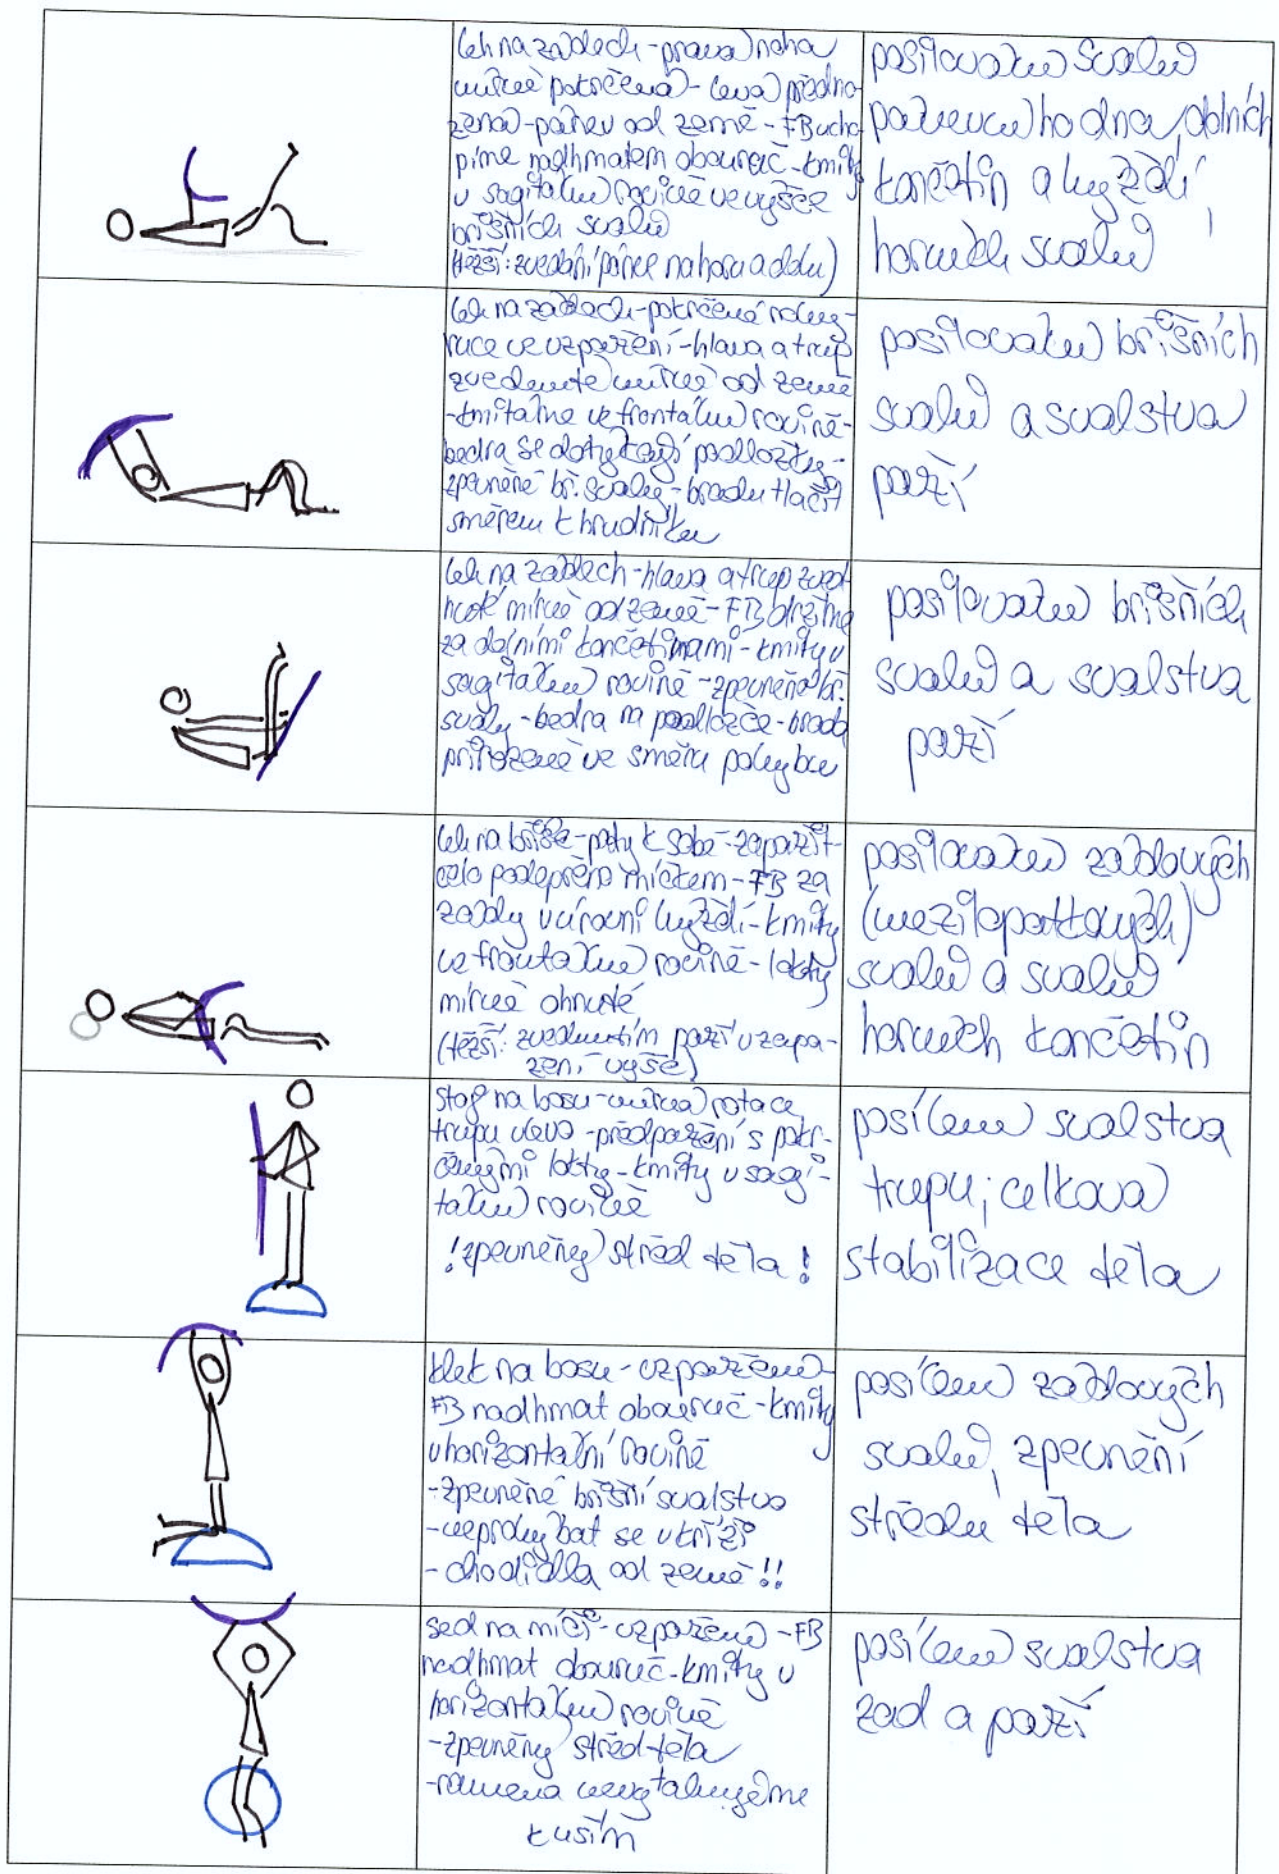 leh na zádech - pravá noha
mírně pokrčená - levá předno-
žená - pánev od země - FB ucho-
píme nadhmatem obouruč - kmity
v sagitální rovině ve výšce
břišních svalů
(těžší: zvedání pánve nahoru a dolů)
posilování svalů
pánevního dna, dolních
končetin a hýždí,
horních svalů
leh na zádech - pokrčené nohy -
ruce ve vzpažení - hlava a trup
zvednuté mírně od země
- kmitáme ve frontální rovině -
bedra se dotýkají podložky -
zpevněné bř. svaly - bradu tlačit
směrem k hrudníku
posilování břišních
svalů a svalstva
paží
leh na zádech - hlava a trup zved-
nuté mírně od země - FB držíme
za dolními končetinami - kmity v
sagitální rovině - zpevněné bř.
svaly - bedra na podložce - brada
přirozeně ve směru pohybu
posilování břišních
svalů a svalstva
paží
leh na břiše - paty k sobě - zapažit -
čelo podepřeno míčkem - FB za
zády v úrovni hýždí - kmity
ve frontální rovině - lokty
mírně ohnuté
(těžší: zvednutím paží v zapa-
žení výše)
posilování zádových
(mezilopatkových)
svalů a svalů
horních končetin
stoj na bosu - mírná rotace
trupu vlevo - předpažení s pokr-
čenými lokty - kmity v sagi-
tální rovině
! zpevněný střed těla !
posílení svalstva
trupu; celková
stabilizace těla
klek na bosu - vzpažení -
FB nadhmat obouruč - kmity
v horizontální rovině
- zpevněné břišní svalstvo
- neprohýbat se v kříži
- chodidla od země !!
posílení zádových
svalů, zpevnění
středu těla
sed na míči - vzpažení - FB
nadhmat obouruč - kmity v
horizontální rovině
- zpevněný střed těla
- ramena nevytahujeme
k uším
posílení svalstva
zad a paží